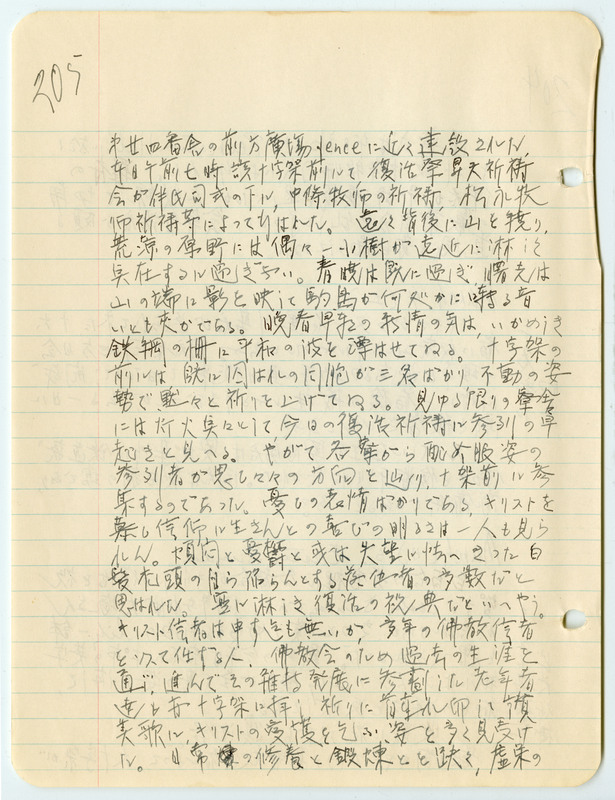 205
廿四番舎の前方廣場fenceに近く建設された
午前七時該十字架前にて復活祭早天祈祷
会が伴氏司式の下に、中條牧師の祈祷、松永牧
師祈祷等によって行はれた。遠く背後に山を繞り、
荒涼の原野には偶々一小樹が遠近に淋しく
点在するに過ぎない。春暁は既に過ぎ、曙光は
山の端に影を映して駒鳥が何処かに囀る音
いとも爽かである。晩春早朝の熱情の気は、いかめしき
鉄網の柵に平和の波を漂はせてゐる。十字架の
前には既に囚はれの同胞が三名ばかり不動の姿
勢で黙々と祈りを上げてゐる。見ゆる限りの寮舎
には灯火点々として今日の復活祈祷に参列の早
起きと見へる。やがて各寮から配給服姿の
参列者が思ひ々々の方向を辿り、十架前に参
集するのであった。憂ひの表情ばかりである。キリストを
慕ひ信仰に生きんとの喜びの明るさは一人も見ら
れん。煩悶と憂鬱と或は失望に怯へきった白
髪老頭の自ら陥らんとする落伍者の多数だと
思はれた。実に淋しき復活の祝典だといへやう。
キリスト信者は申す迄も無いが、多年の佛教信者
を以て任ずる人、佛教会のため過去の生涯を
通じ、進んでその維持発展に参劃した老年者
達も亦十字架に拝し祈りに首を垂れ伏して讃
美歌にキリストの愛護を乞ふ姿を多く見受け
た。日常の修養と鍛煉とを缺く、虚栄の